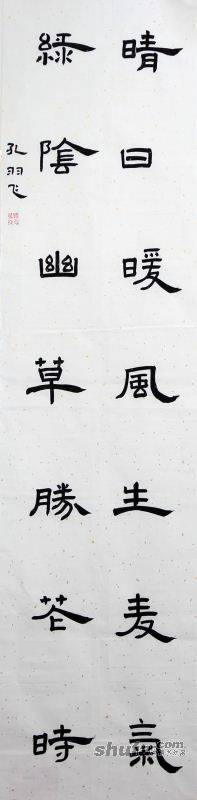 晴日暖風生麦氣
綠陰幽草勝花時
孔羽飞